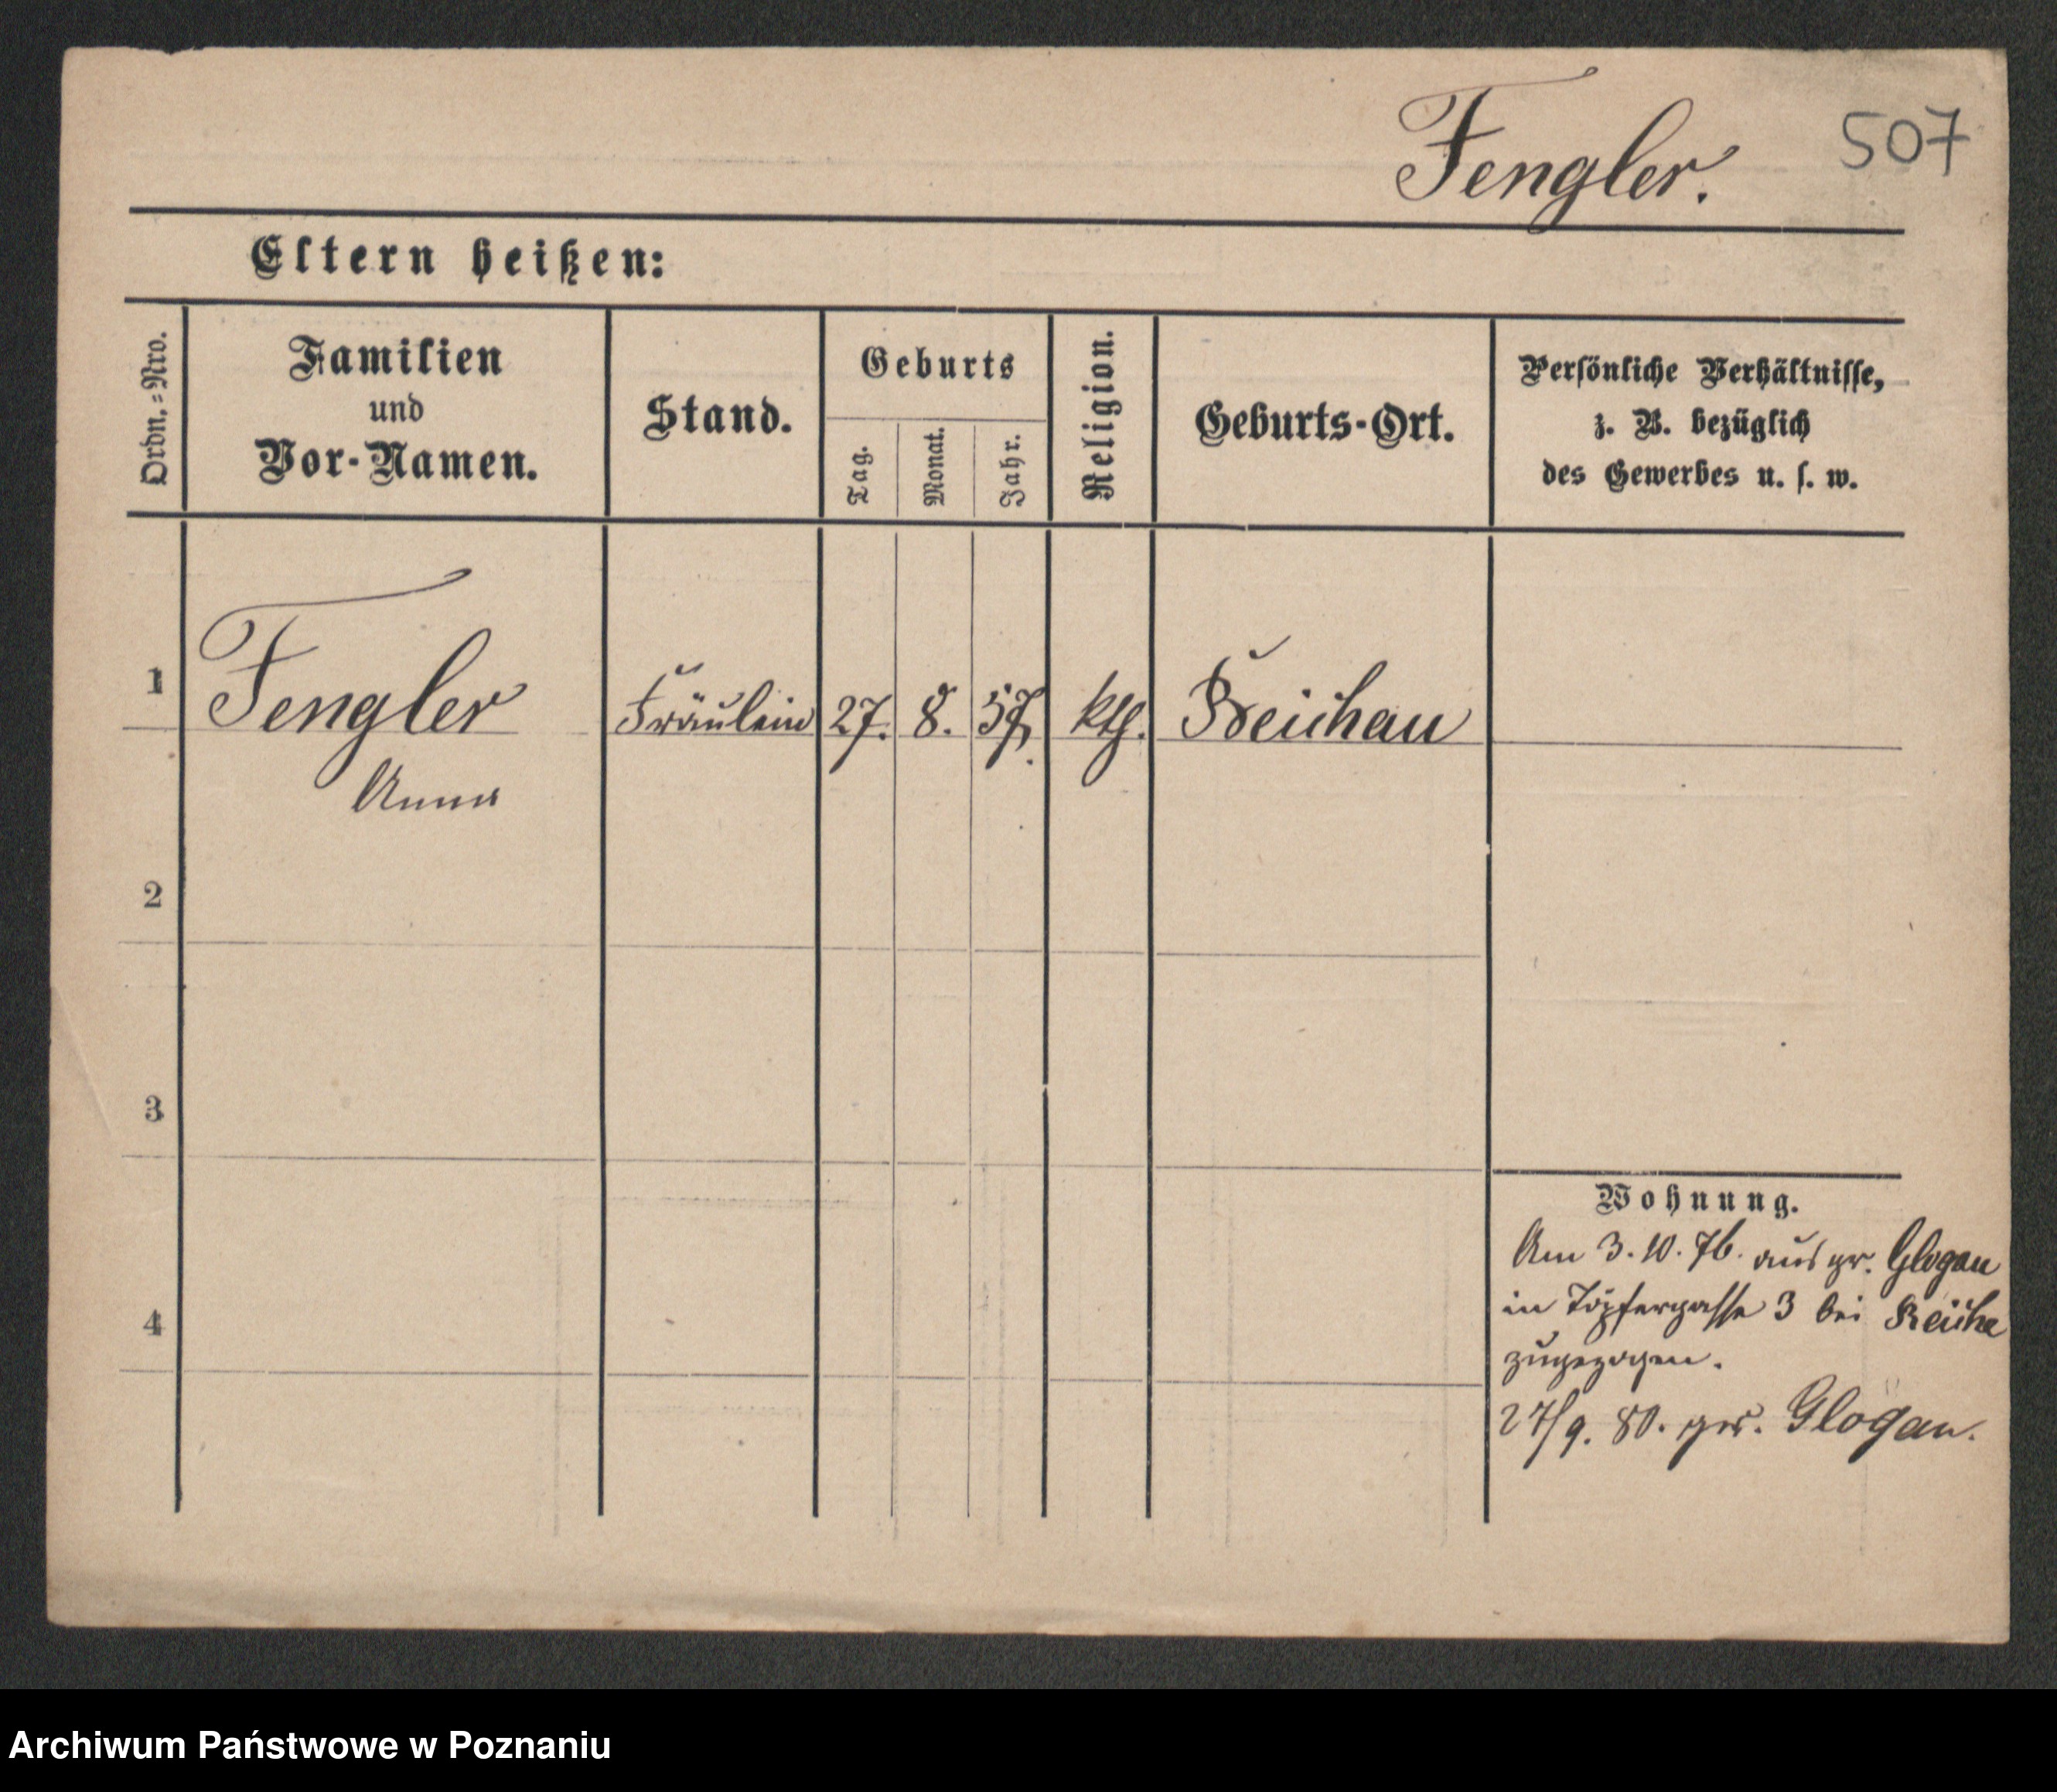 Fengler.
507
Eltern heißen:
Ordn.=Nro.
Familien
und
Vor-Namen.
Stand.
Geburts
Tag.
Monat.
Jahr.
Religion.
Geburts-Ort.
Persönliche Verhältnisse,
z. B. bezüglich
des Gewerbes u. s. w.
1
Fengler
Anna
Fräulein
27.
8.
57.
kth.
Reichau
2
3
4
Wohnung.
Am 3. 10. 76. aus gr. Glogau
in Töpfergasse 3 bei Reiche
zugezogen.
27/9. 80. grs. Glogau.
Archiwum Państwowe w Poznaniu